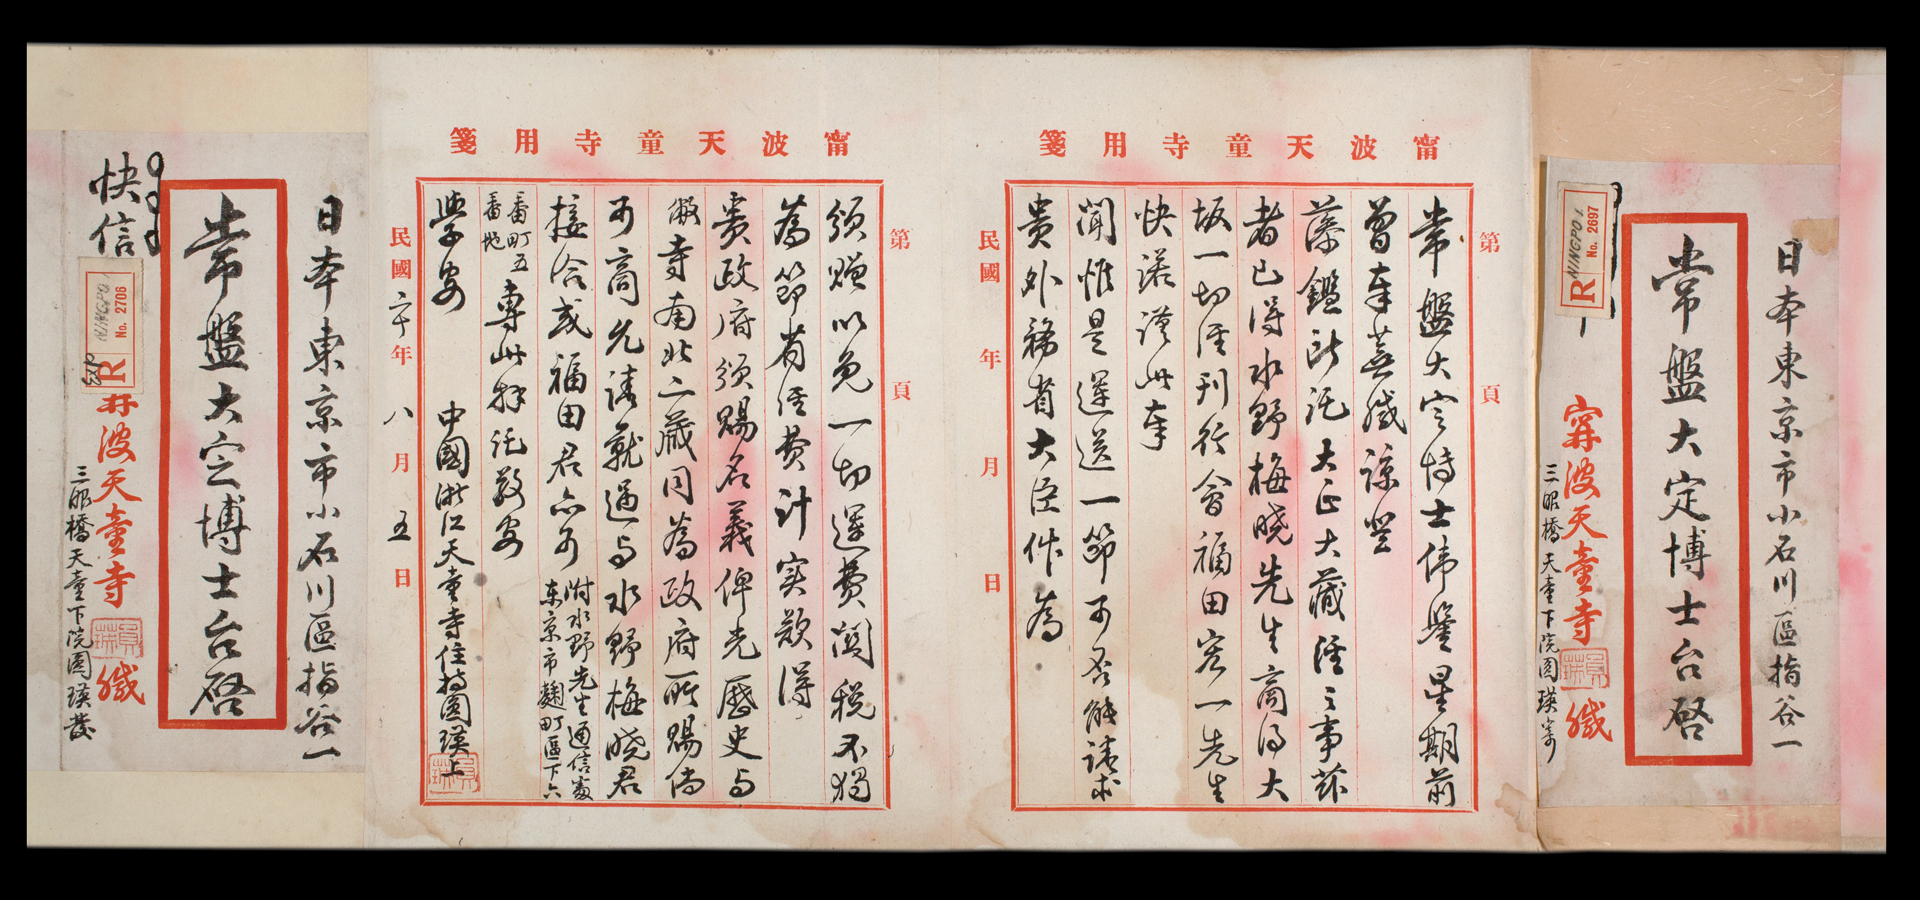 日本東京市小石川區指谷一
常盤大定博士台啓
R NINGPO 1 No. 2697
甯波天童寺緘
三眼橋天童下院圓瑛寄
甯波天童寺用箋
第 頁
常盤大定博士偉鑒星期前
曾奉蕪緘諒登
藻鑑所託大正大藏經之事茲
者已得水野梅曉先生商得大
坂一切經刊行會福田宏一先生
快諾謹此奉
聞惟是運送一節可否能請求
貴外務省大臣作為
民國 年 月 日
甯波天童寺用箋
第 頁
頒贈以免一切運費關稅不獨
為節省經費計實欲得
貴政府頒賜名義俾光歷史與
敝寺南北二藏同為政府所賜倘
可高允請就近與水野梅曉君
接洽或福田君亦可
附水野先生通信處
东京市麹町區下六
番町五
番地
專此拜託敬
學安 中國浙江天童寺住持圓瑛上
民國二十年八月五日
日本東京市小石川區指谷一
常盤大定博士台啓
快信
R NINGPO No. 2706
甯波天童寺緘
三眼橋天童下院圓瑛發